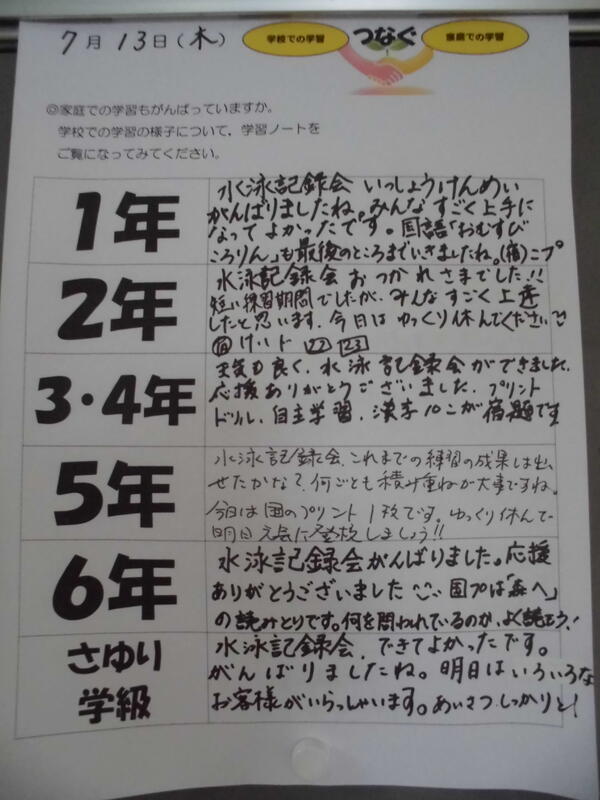 7月13日(木)
学校での学習
つなぐ
家庭での学習
◎家庭での学習もがんばっていますか。
学校での学習の様子について、学習ノートを
ご覧になってみてください。
1年
水泳記録会 いっしょうけんめい
がんばりましたね。みんなすごく上手に
なってよかったです。国語「おむすび
ころりん」も最後のところまでいきましたね。(宿)こプ
2年
水泳記録会 おつかれさまでした!!
短い練習期間でしたが、みんなすごく上達
したと思います。今日はゆっくり休んでください
宿 けいド 22 23
3・4年
天気も良く、水泳記録会ができました。
応援ありがとうございました。プリント
ドリル、自主学習、漢字10こが宿題です
5年
水泳記録会、これまでの練習の成果は出
せたかな?、何ごとも積み重ねが大事ですね。
今日は国のプリント1枚です。ゆっくり休んで
明日元気に登校しましょう!!
6年
水泳記録会がんばりました。応援
ありがとうございました 国プは「森へ」
の読みとりです。何を問われているのか、よく読もう!
さゆり
学級
水泳記録会、できてよかったです。
がんばりましたね。明日はいろいろな
お客様がいらっしゃいます。あいさつしっかりと!